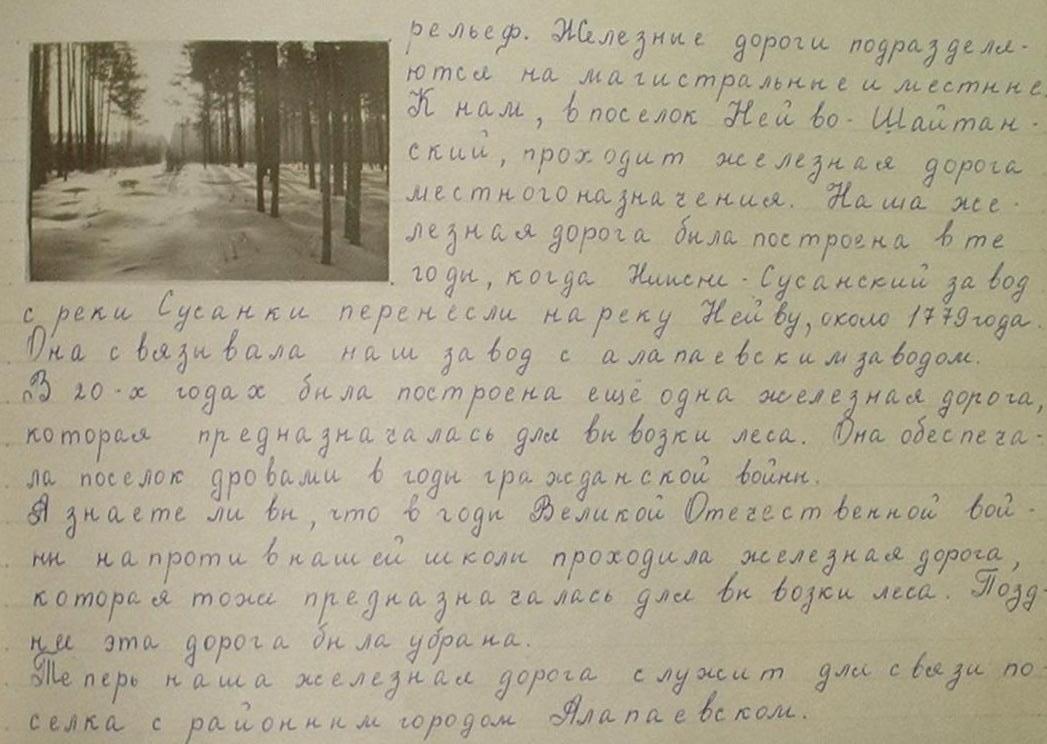 рельеф. Железные дороги подразделя-
ются на магистральные и местные.
К нам, в поселок Нейво-Шайтан-
ский, проходит железная дорога
местного назначения. Наша же-
лезная дорога была построена в те
годы, когда Нижне-Сусанский завод
с реки Сусанки перенесли на реку Нейву, около 1779 года.
Она связывала наш завод с алапаевским заводом.
В 20-х годах была построена ещё одна железная дорога,
которая предназначалась для вывозки леса. Она обеспеча-
ла поселок дровами в годы гражданской войны.
А знаете ли вы, что в годы Великой Отечественной вой-
ны напротив нашей школы проходила железная дорога,
которая тоже предназначалась для вывозки леса. Позд-
нее эта дорога была убрана.
Теперь наша железная дорога служит для связи по-
селка с районным городом Алапаевском.